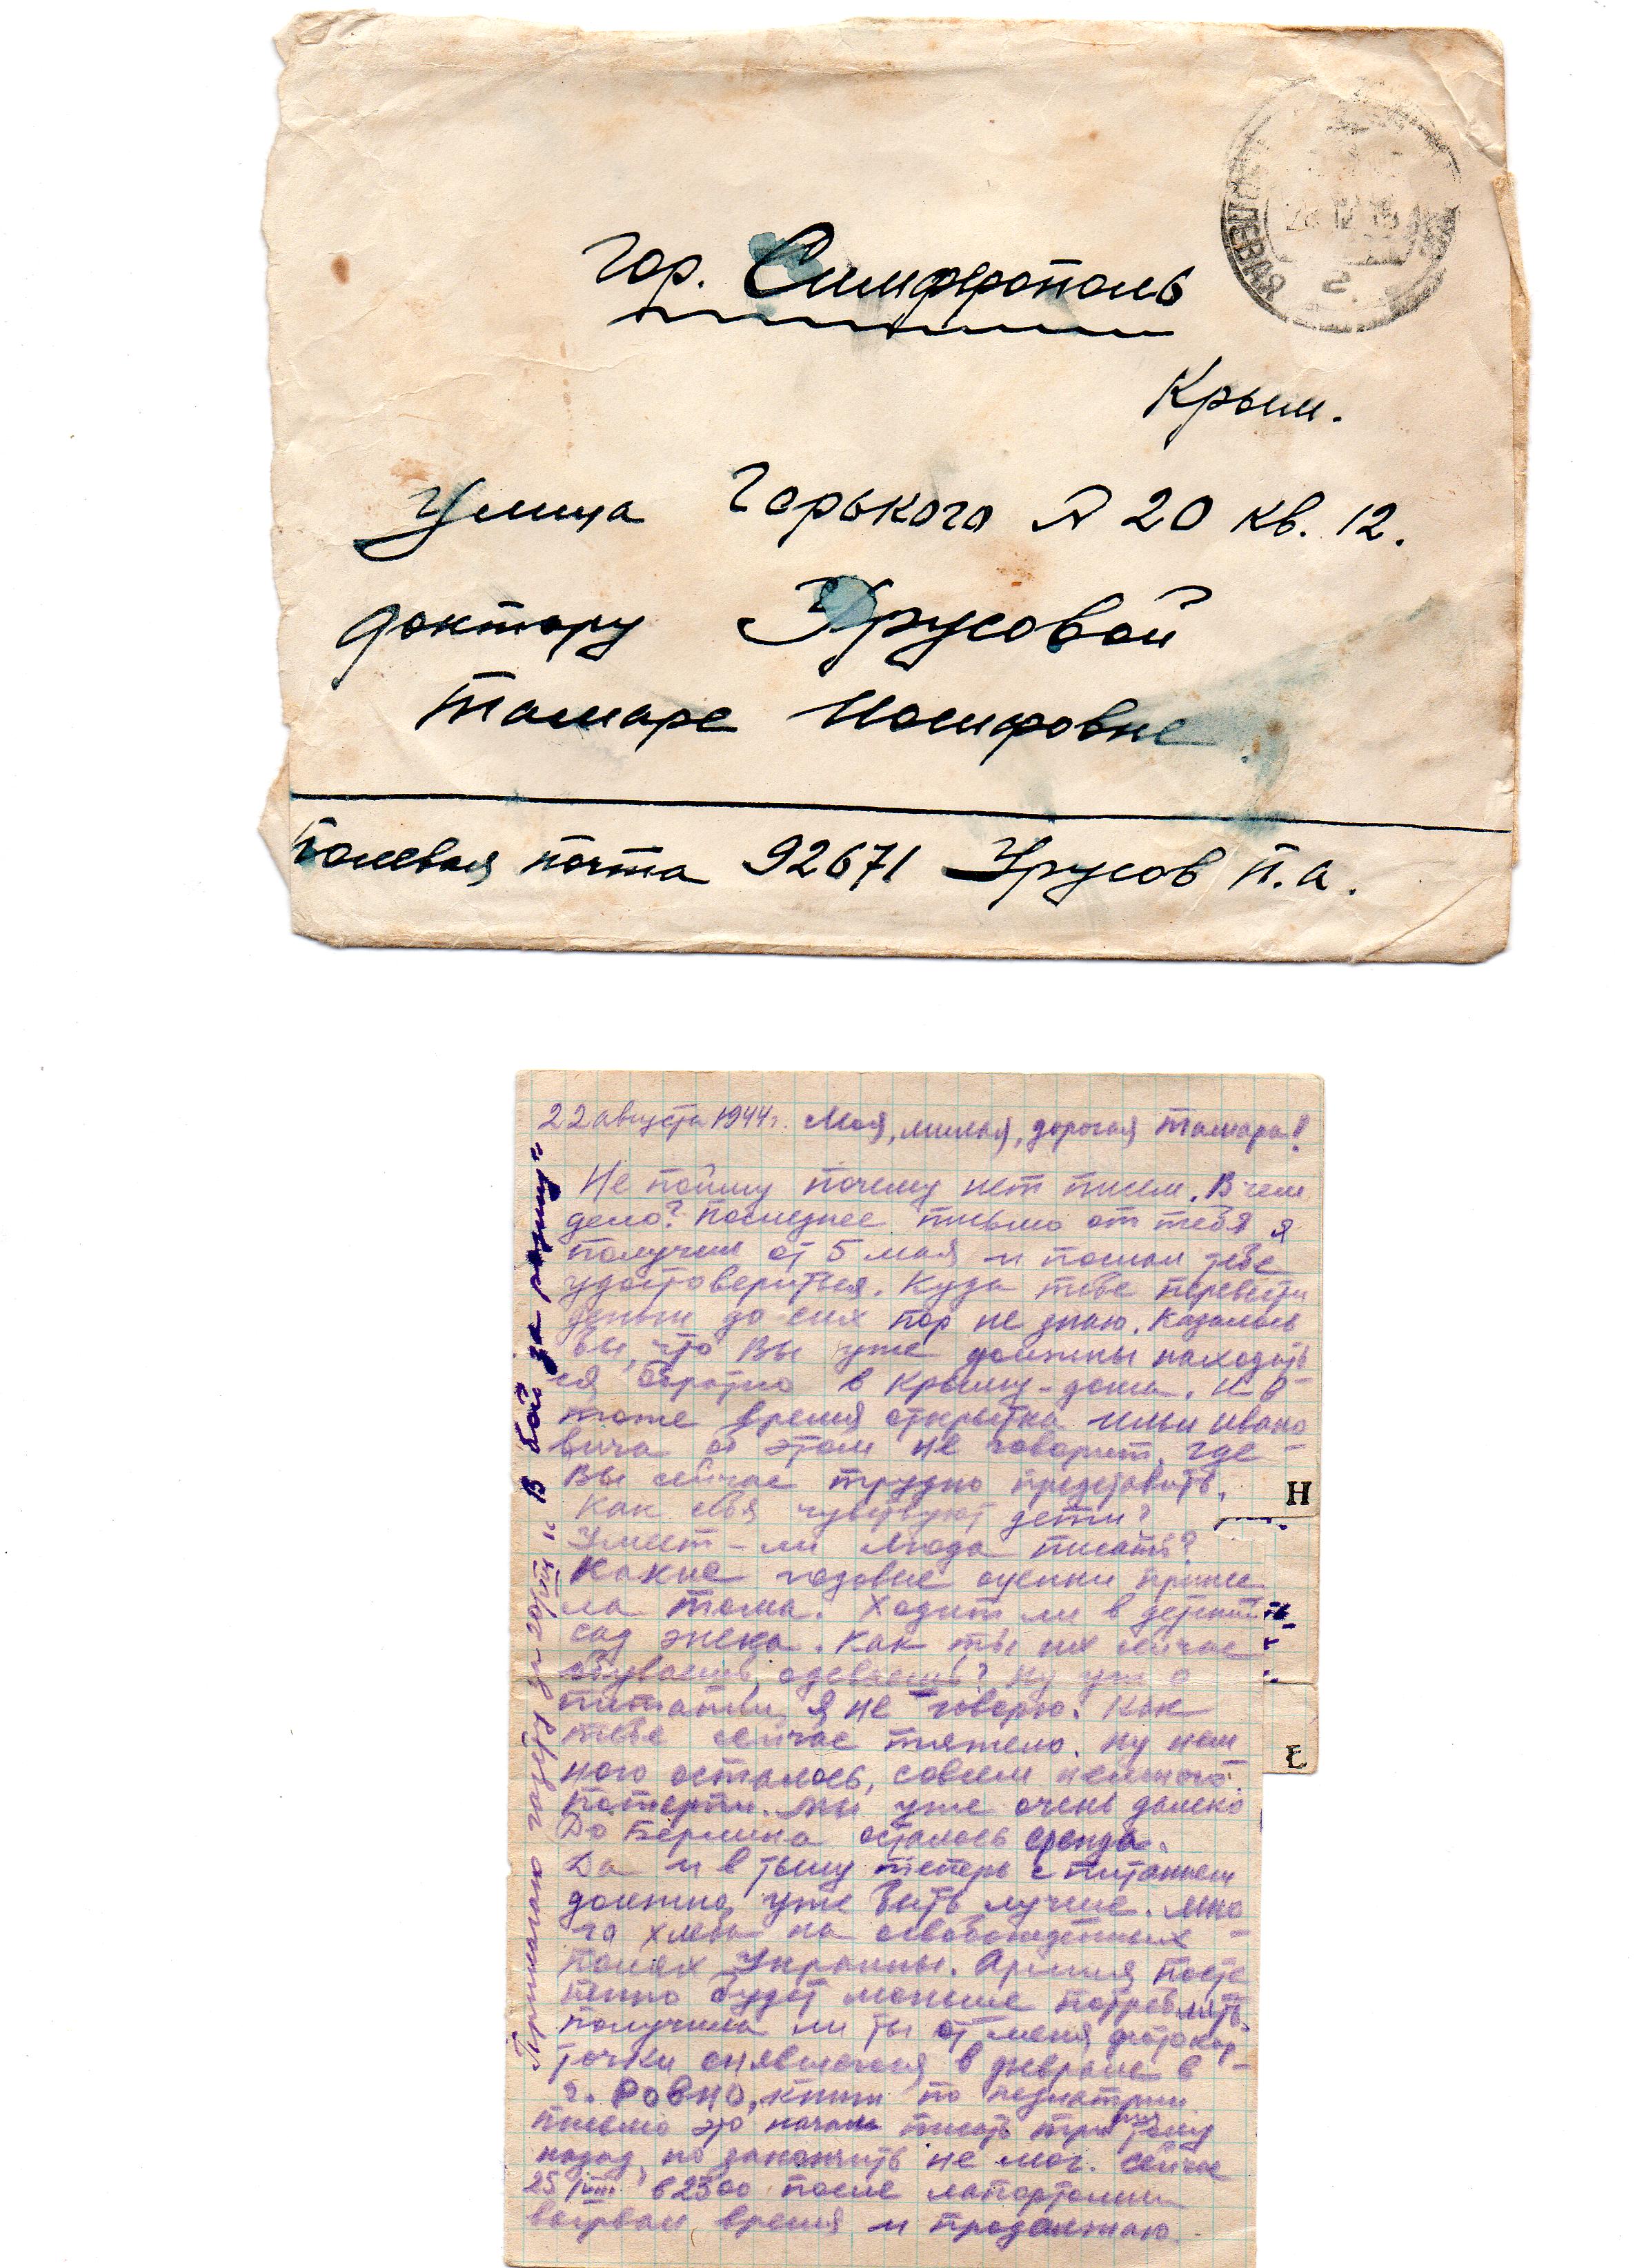 ПОЛЕВАЯ
2
гор. Симферополь
Крым.
Улица Горького № 20 кв. 12.
доктору Урусовой
Тамаре Иосифовне
Полевая почта 92671 Урусов П.А.
22 августа 1944 г. Моя, милая, дорогая Тамара!
Не пойму почему нет писем. В чем
дело? Последнее письмо от тебя я
получил от 5 мая и послал тебе
удостоверится. Куда тебе перевести
деньги до сих пор не знаю. Казалось
бы, что Вы уже должны находить
ся обратно в Крыму - дома. И в
тоже время открытка Ильи Ивано
вича об этом не говорит. Где
Вы сейчас трудно представить.
Как себя чувствуют дети?
Умеет-ли Люда писать?
Какие годовые оценки принес
ла Тома. Ходит ли в детский
сад Жека. Как ты их сейчас
обуваешь, одеваешь? Ну уж о
питании я не говорю. Как
тебе сейчас тяжело. Ну нем
ного осталось, совсем немного
потерпи. Мы уже очень далеко
До Берлина осталось ерунда.
Да и в тылу теперь с питанием
должно уже быть лучше. Мно
го хлеба на освобожденных
полях Украины. Армия посте
пенно будет меньше потреблять.
Получила ли ты от меня фотокар
точки снявшегося в феврале в
г. Ровно, книги по педиатрии.
Письмо это начал писать три дня тому
назад, но закончить не мог. Сейчас
25/VIII в 2300 после лапортомии
вырвал время и продолжаю.
"В бой за родину"
Н
Е